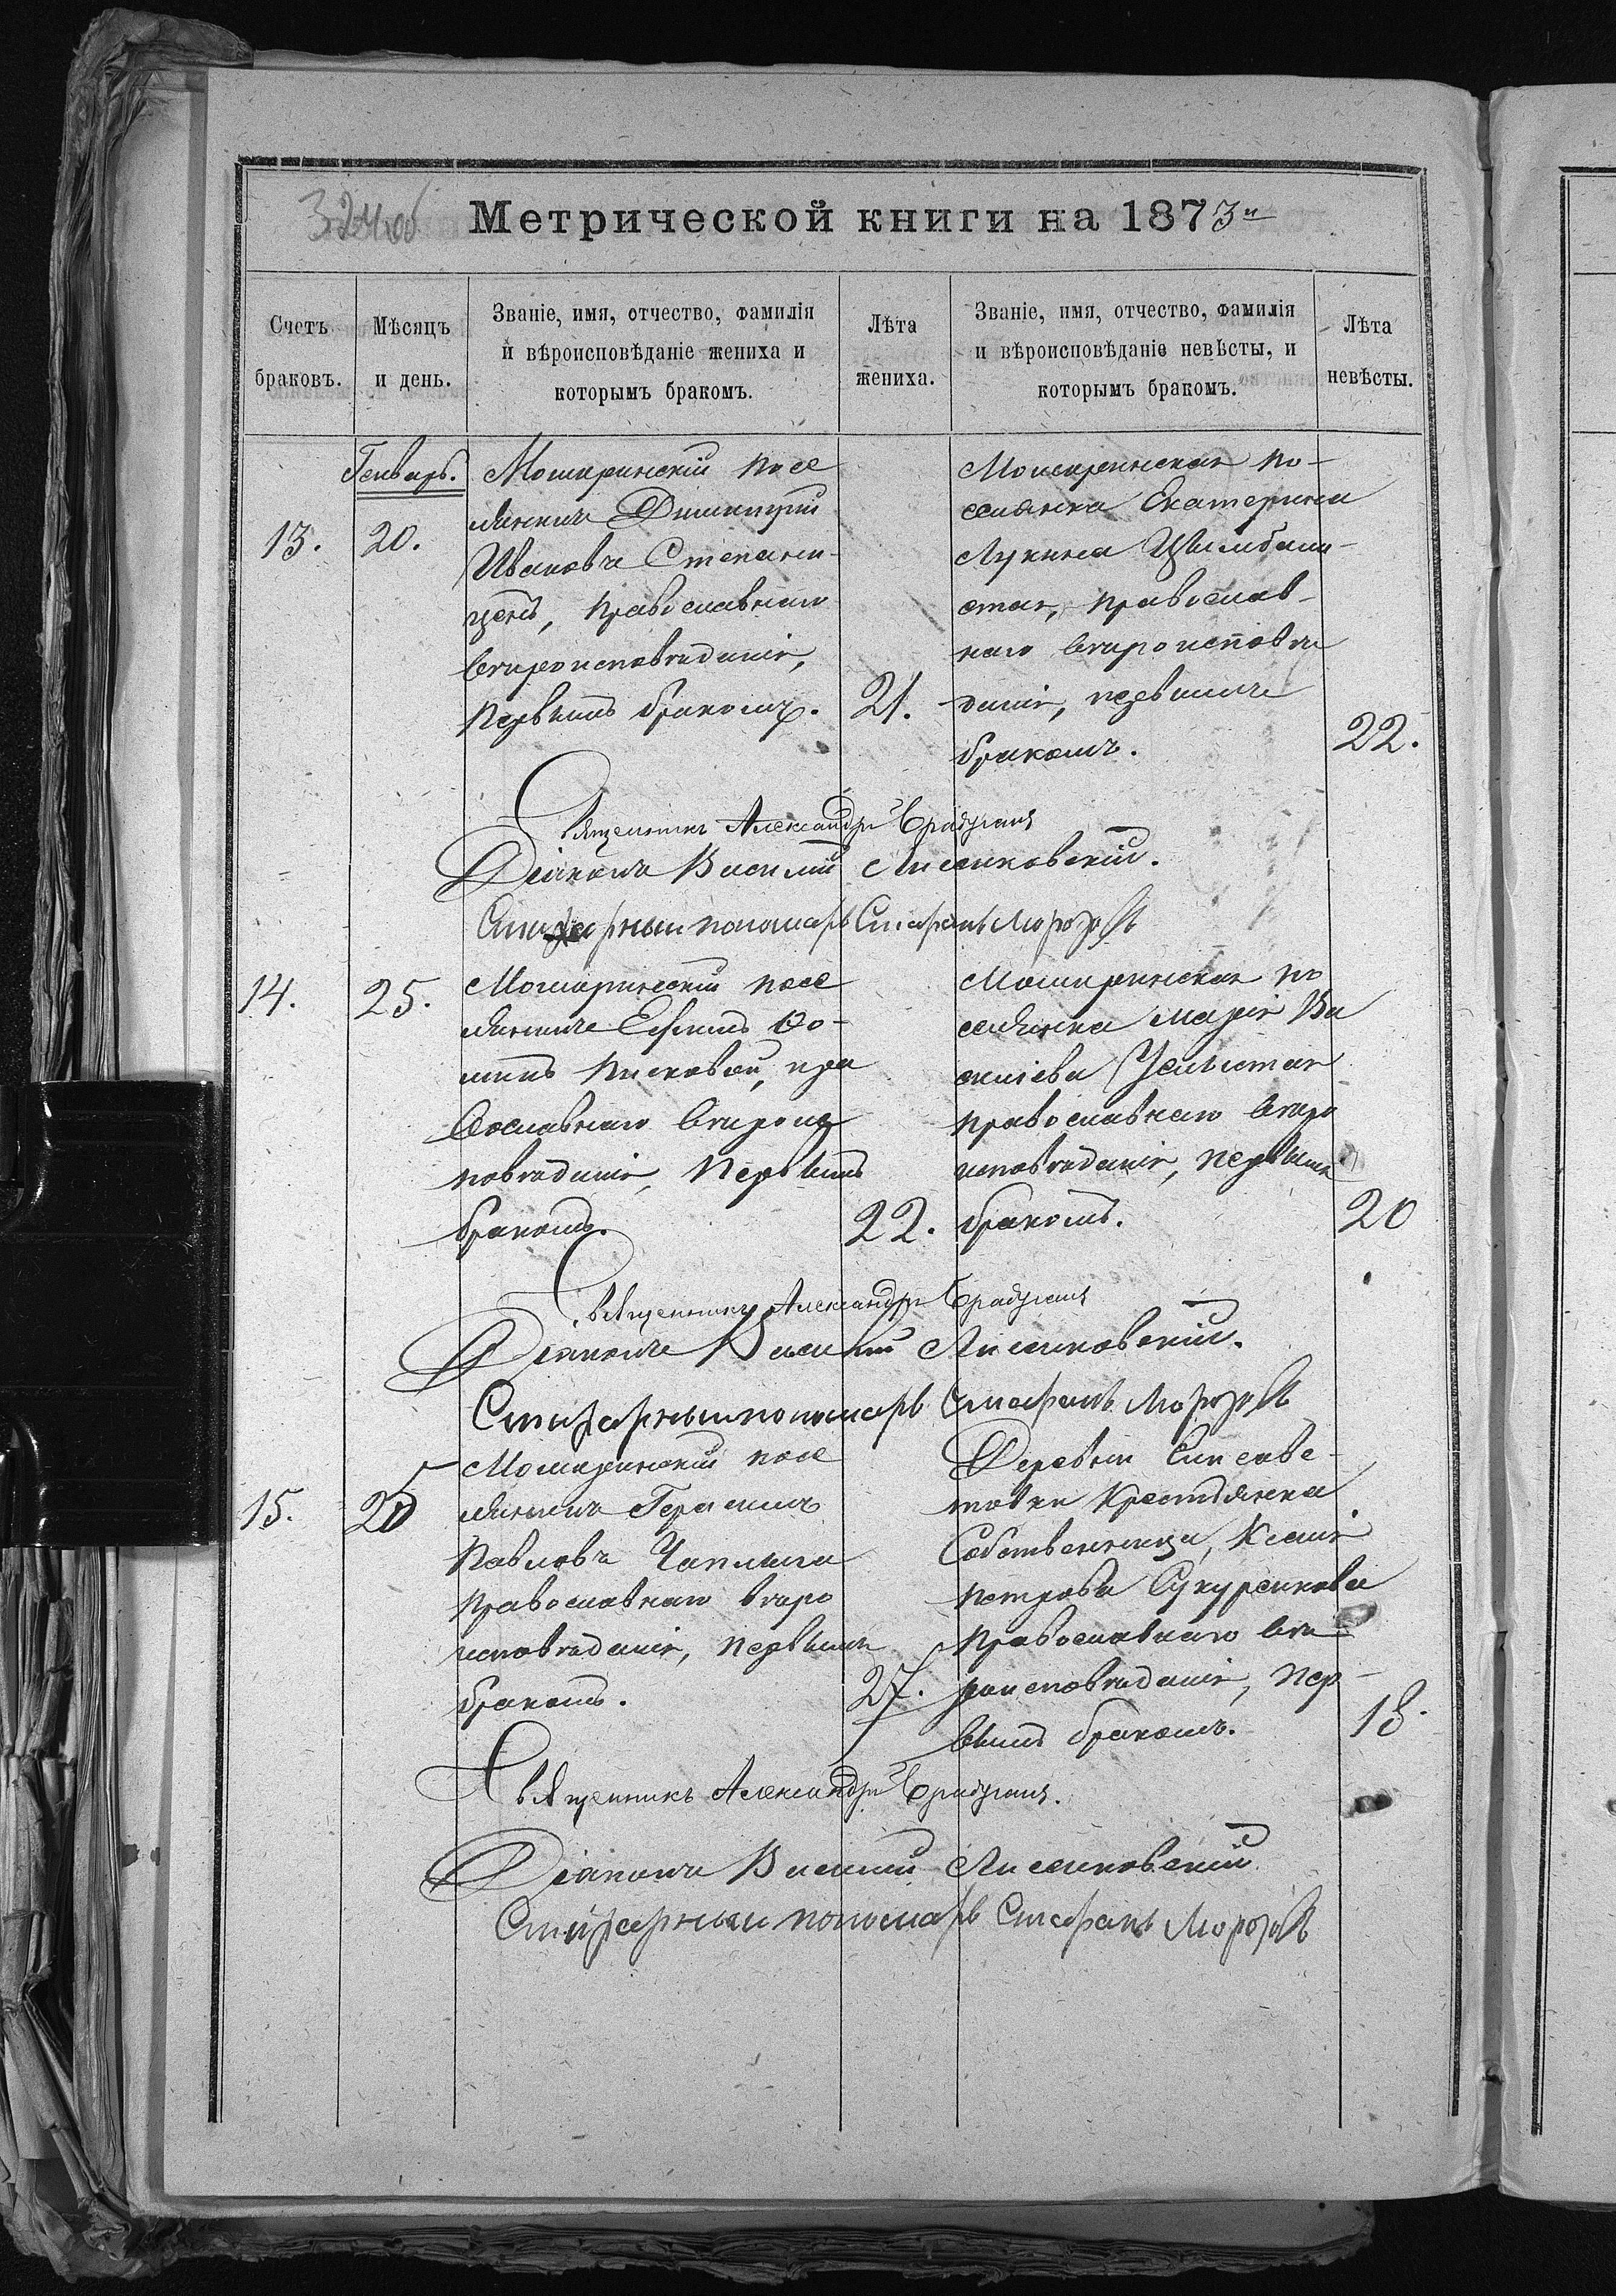 324 об
Метрической книги на 1873 й
Счетъ браковъ.
Мѣсяцъ и день.
Званіе, имя, отчество, фамилія
и вѣроисповѣданіе жениха и
которымъ бракомъ.
Лѣта жениха.
Званіе, имя, отчество, фамилія
и вѣроисповѣданіе невѣсты, и
которымъ бракомъ.
Лѣта невѣсты.
Генварь.
13.
20.
Мошаринскій посе
лянинъ Димитрій
Ивановъ Степани-
ценъ, православнаго
вѣроисповѣданія,
первымъ бракомъ.
21.
Мошаринская по-
селянка Екатерина
Лукина
православ-
наго вѣроисповѣ
данія, первымъ
бракомъ.
22.
Священникъ Александръ
Діаконъ Василій Лисиковскій.
пономарь Стефанъ Морозовъ
14.
25.
Мошаринскій посе
лянинъ Ефимъ Ѳо-
минъ Писковой, пра
вославнаго вѣроис
повѣданія, первымъ
бракомъ.
22.
Мошаринская по
селянка Марія Ва
силіева
православнаго вѣро
исповѣданія, первымъ
бракомъ.
20
Священникъ Александръ
Діаконъ Василій Лисиковскій.
пономарь Стефанъ Морозовъ
15.
25
Мошаринскій посе
лянинъ Герасимъ
Павловъ Чаплыга
православнаго вѣро
исповѣданія, первымъ
бракомъ.
27.
Деревни Елисаве-
товки крестьянка
собственница, Ксенія
Петрова Сукуренкова
православнаго вѣ-
роисповѣданія, пер-
вымъ бракомъ.
18.
Священникъ Александръ
Діаконъ Василій Лисиковскій
пономарь Стефанъ Морозовъ